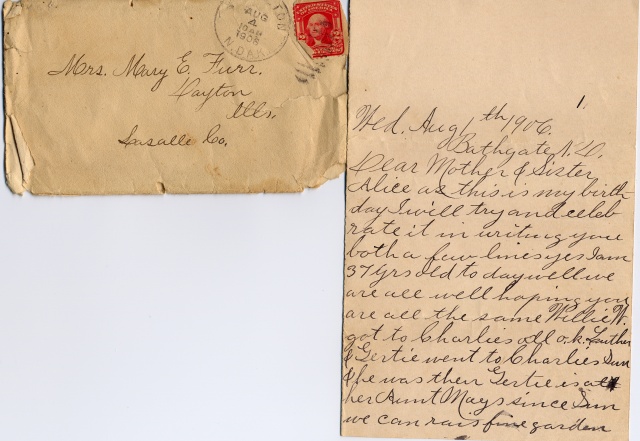 AUG
4
10 AM
1906
N.DAK.
Mrs. Mary E. Furr.
Dayton
Ills.
Lasalle Co.
1.
Wed. Aug 1th 1906.
Bathgate, N.D.
Dear Mother & Sister
Alice as this is my birth-
day I will try and celeb
rate it in writing you
both a few lines yes I am
37 yrs old to day well we
are all well hoping you
are all the same Willie W.
got to Charlies all o.k. Luther
& Gertie went to Charlies Sun
& he was then Gertie is at
her Aunt Mays since Sun
we can rais fine garden